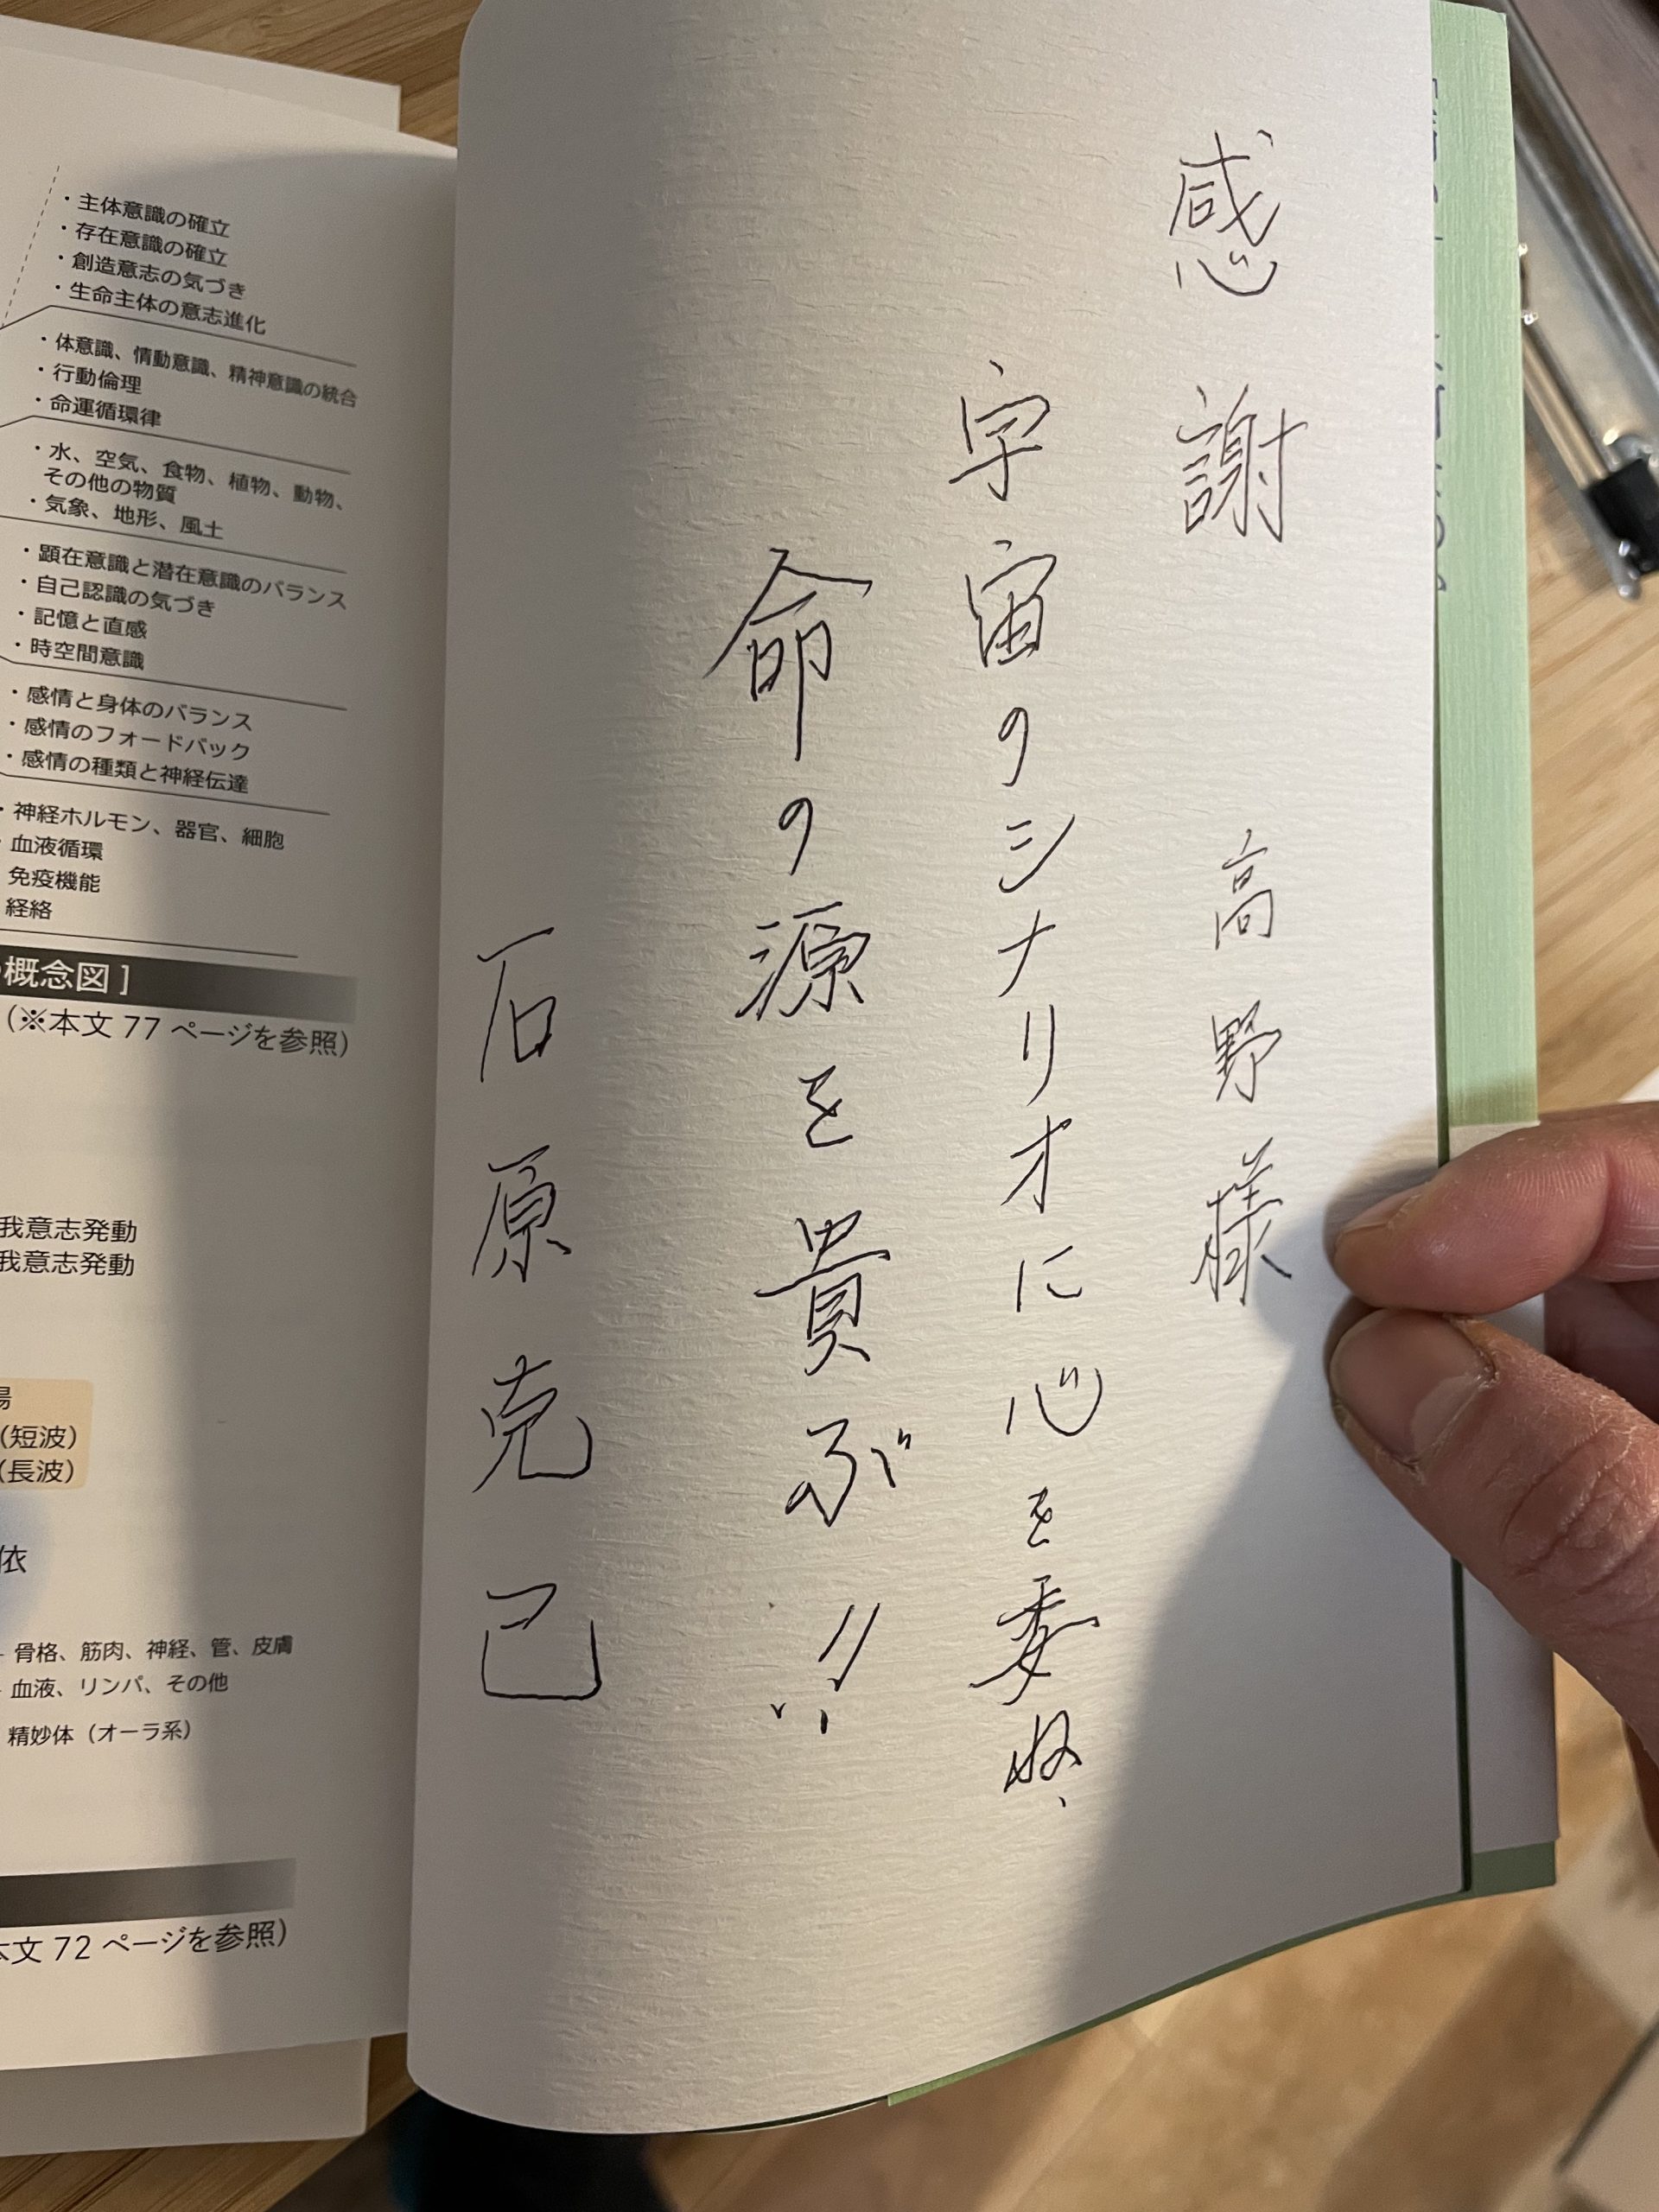 感謝 高野様
宇宙のシナリオに心を委ね、
命の源を貴ぶ!!
石原克己
・主体意識の確立
・存在意識の確立
・創造意志の気づき
・生命主体の意志進化
・体意識、情動意識、精神意識の統合
・行動倫理
・命運循環律
・水、空気、食物、植物、動物、
その他の物質
・気象、地形、風土
・顕在意識と潜在意識のバランス
・自己認識の気づき
・記憶と直感
・時空間意識
・感情と身体のバランス
・感情のフォードバック
・感情の種類と神経伝達
・神経ホルモン、器官、細胞
・血液循環
免疫機能
経絡
概念図]
(※本文 77 ページを参照)
我意志発動
我意志発動
(短波)
(長波)
依
骨格、筋肉、神経、管、皮膚
血液、リンパ、その他
精妙体(オーラ系)
本文 72 ページを参照)